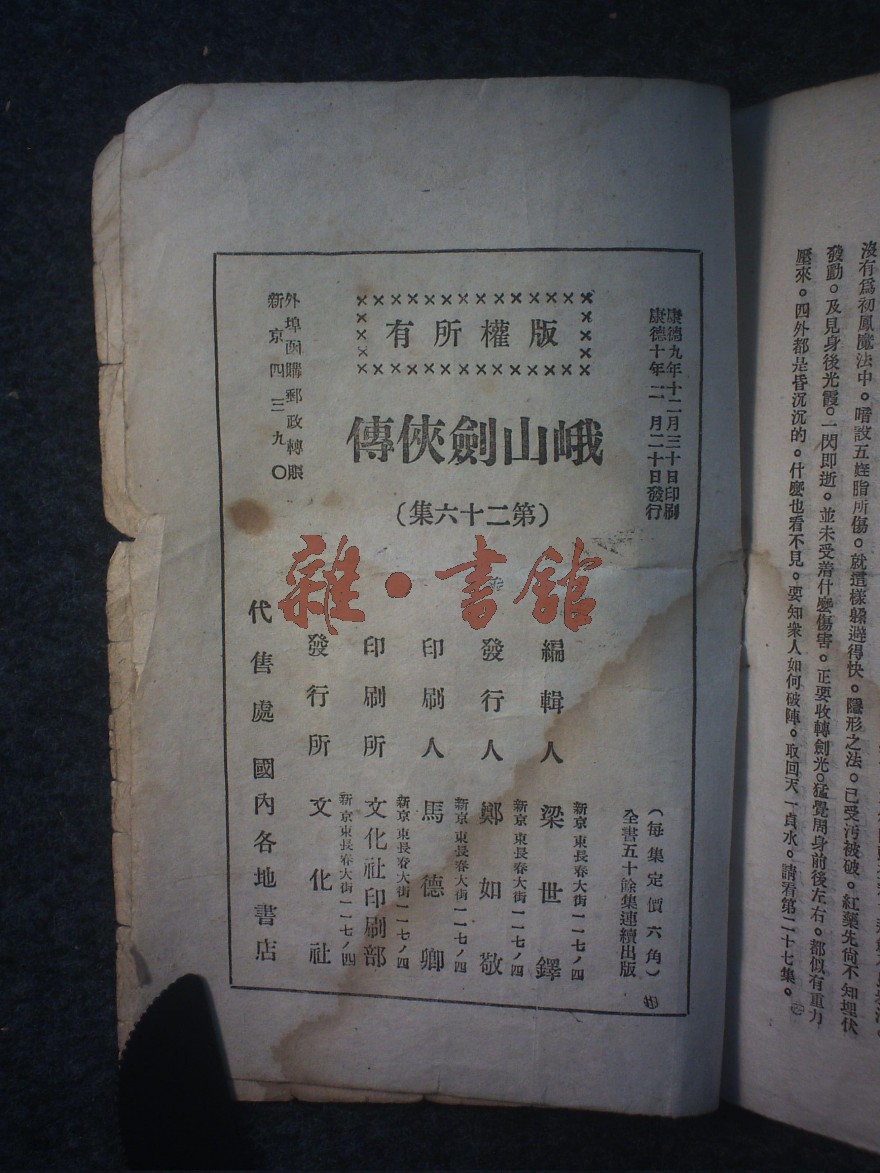 沒有爲初鳳魔法中。暗設五婬脂所傷。就這樣躱避得快。隱形之法。已受污被破。紅藥先尙不知埋伏
發動。及見身後光霞。一閃卽逝。並未受着什麽傷害。正要收轉劍光。猛覺周身前後左右。都似有重力
壓來。四外都是昏沉沉的。什麽也看不見。要知衆人如何破陣。取回天一貞水。請看第二十七集。
康德九年十二月三十日印刷
康德十年二月二十日發行
版權所有
峨山劍俠傳
(第二十六集)
外埠函購郵政轉賬
新京四三九〇
雜·書館
(每集定價六角)
全書五十餘集連續出版
新京東長春大街一一七ノ四
編輯人 梁世鐸
新京東長春大街一一七ノ四
發行人 鄭如敬
新京東長春大街一一七ノ四
印刷人 馬德卿
新京東長春大街一一七ノ四
印刷所 文化社印刷部
新京東長春大街一一七ノ四
發行所 文化社
代售處 國內各地書店